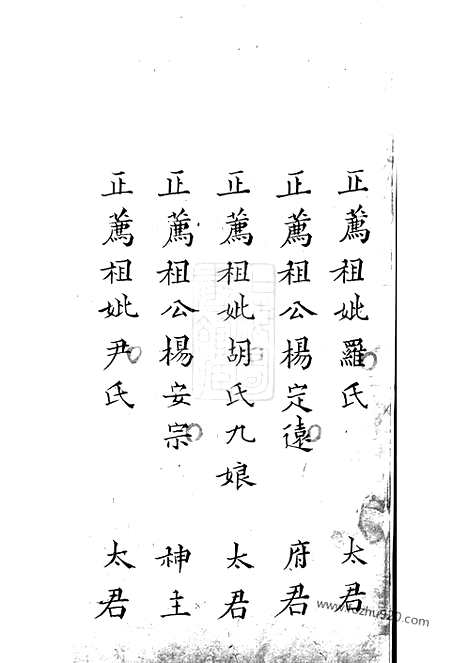 正薦祖妣羅氏 太君
正薦祖公楊定遠 府君
正薦祖妣胡氏九娘 太君
正薦祖公楊安宗 神主
正薦祖妣尹氏 太君
www.fozhu920.com